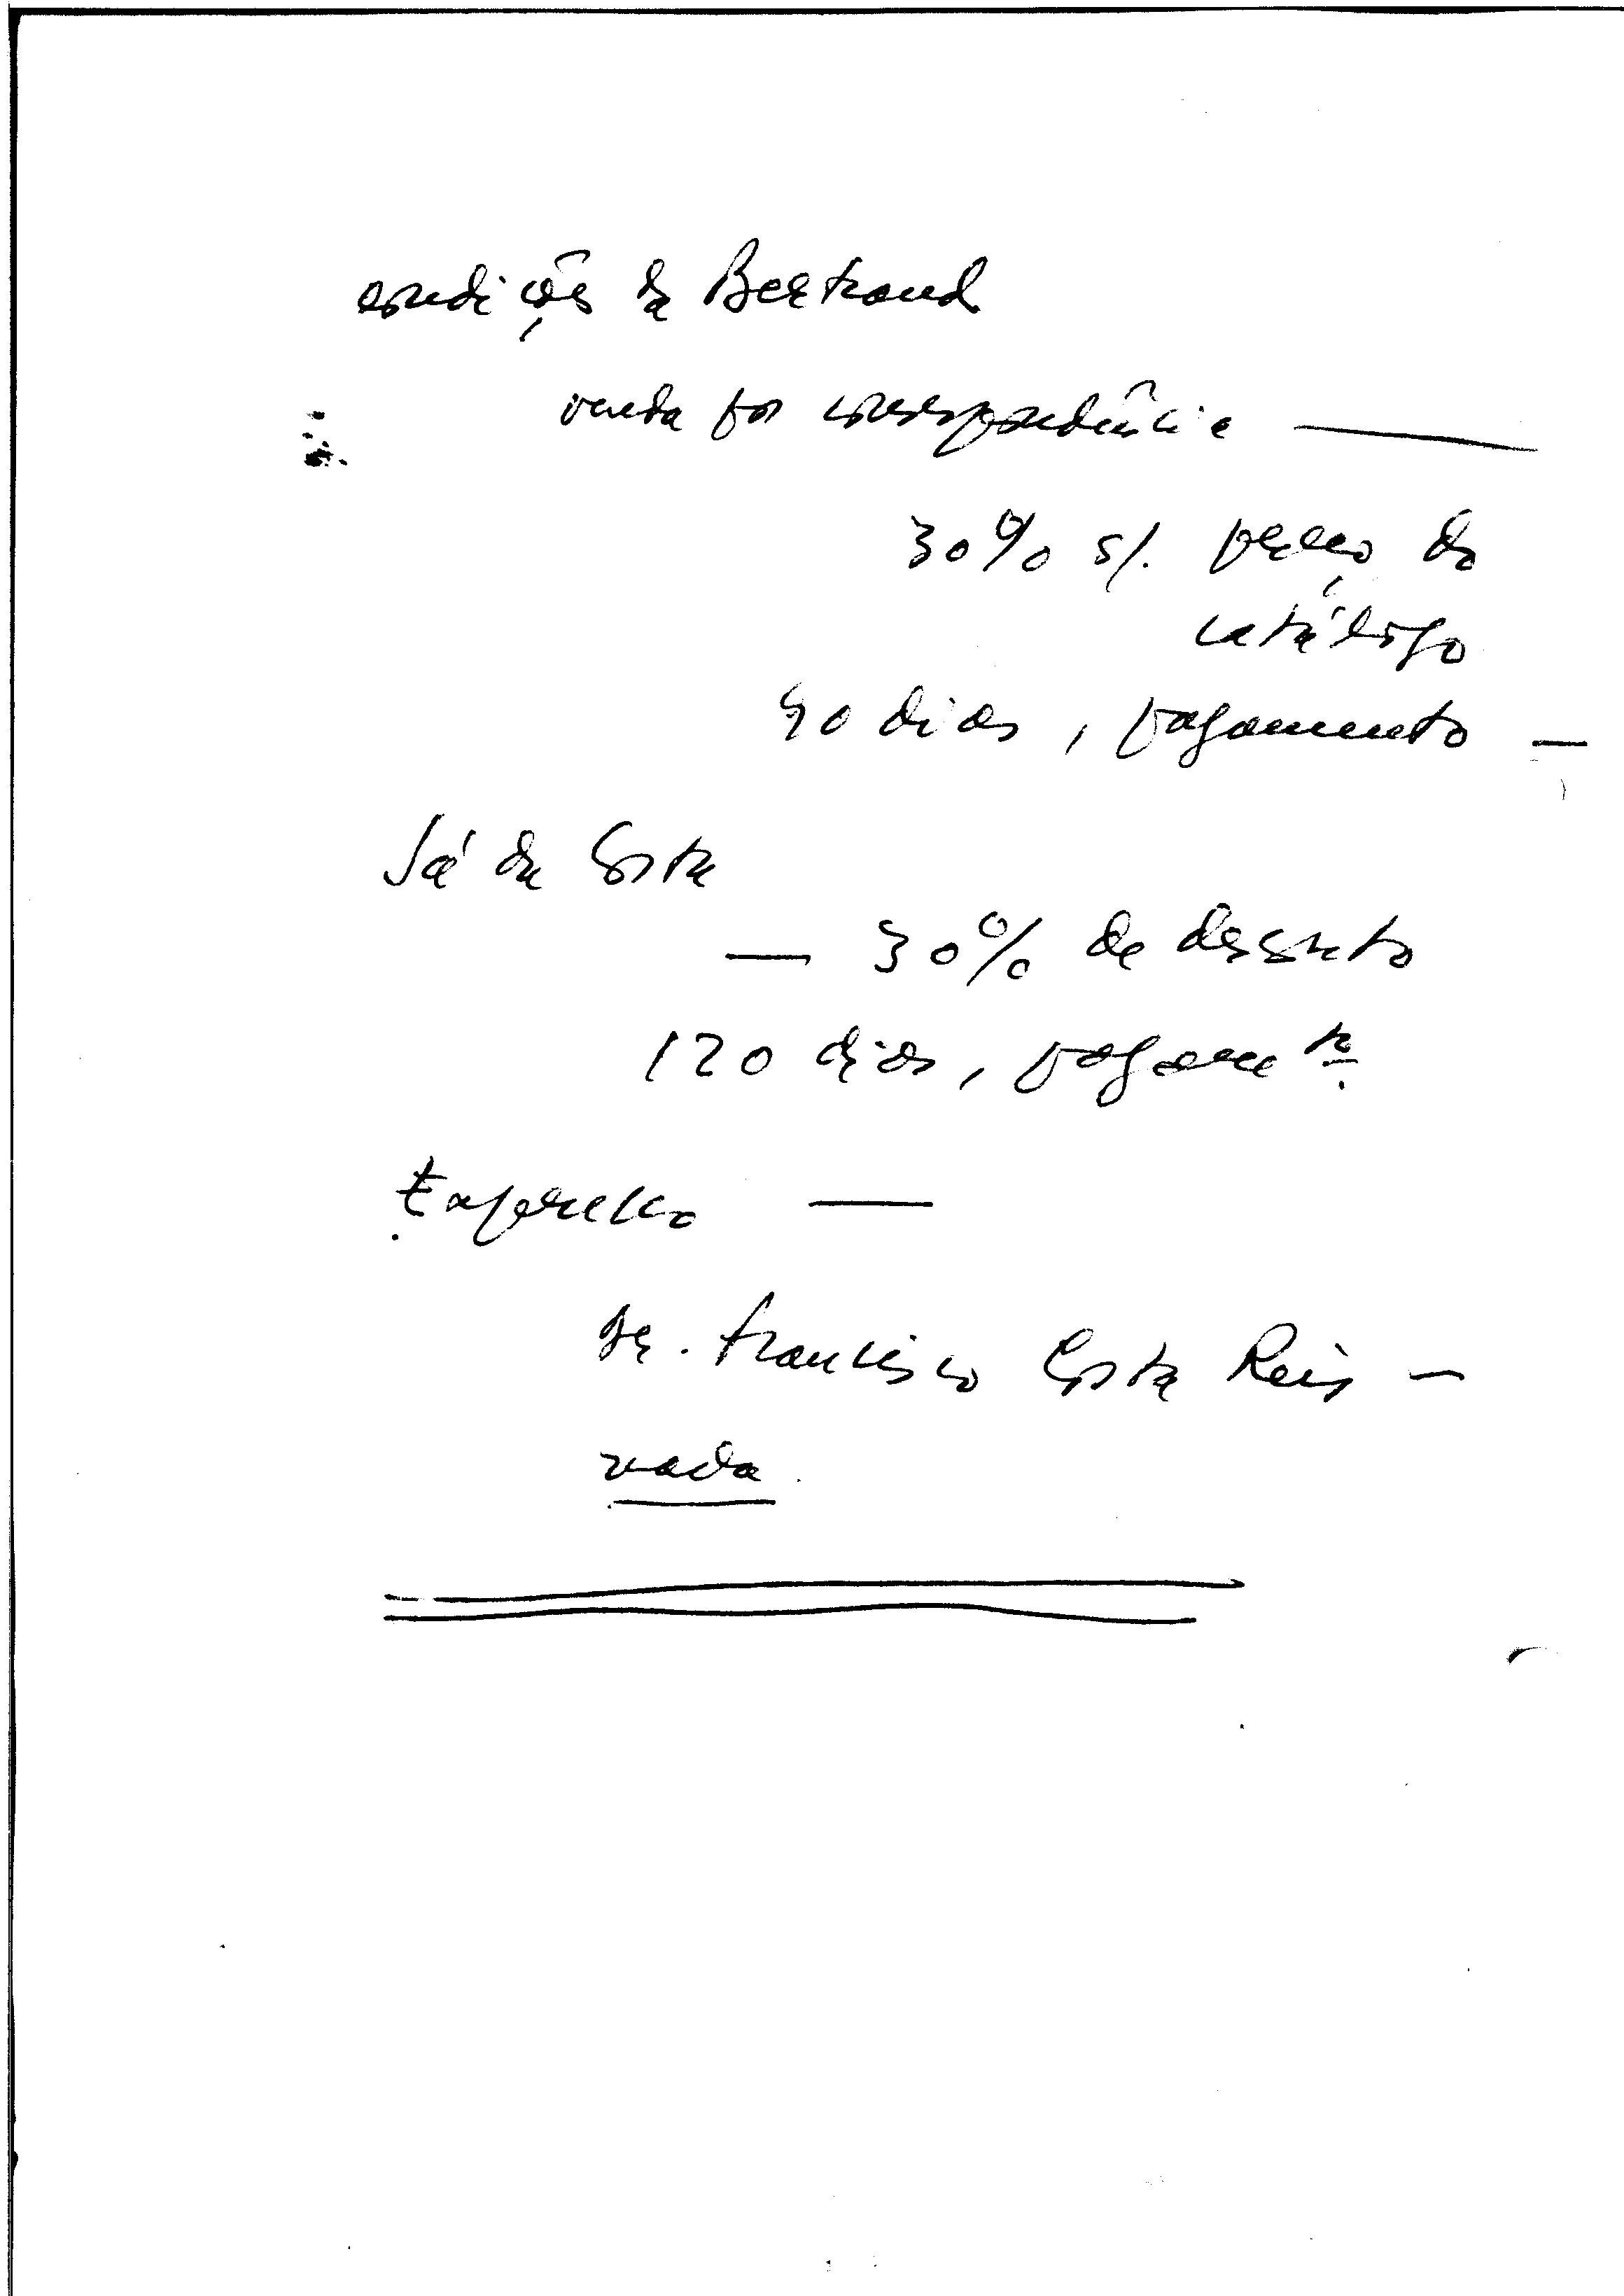 condições da Bertrand
venda por correspondência —
30% s/. preço do
catálogo
90 dias, pagamento —
Sá da Costa
— 30% de desconto
120 dias, pagamto.
Expresso —
Dr. Francisco Costa Reis —
nada